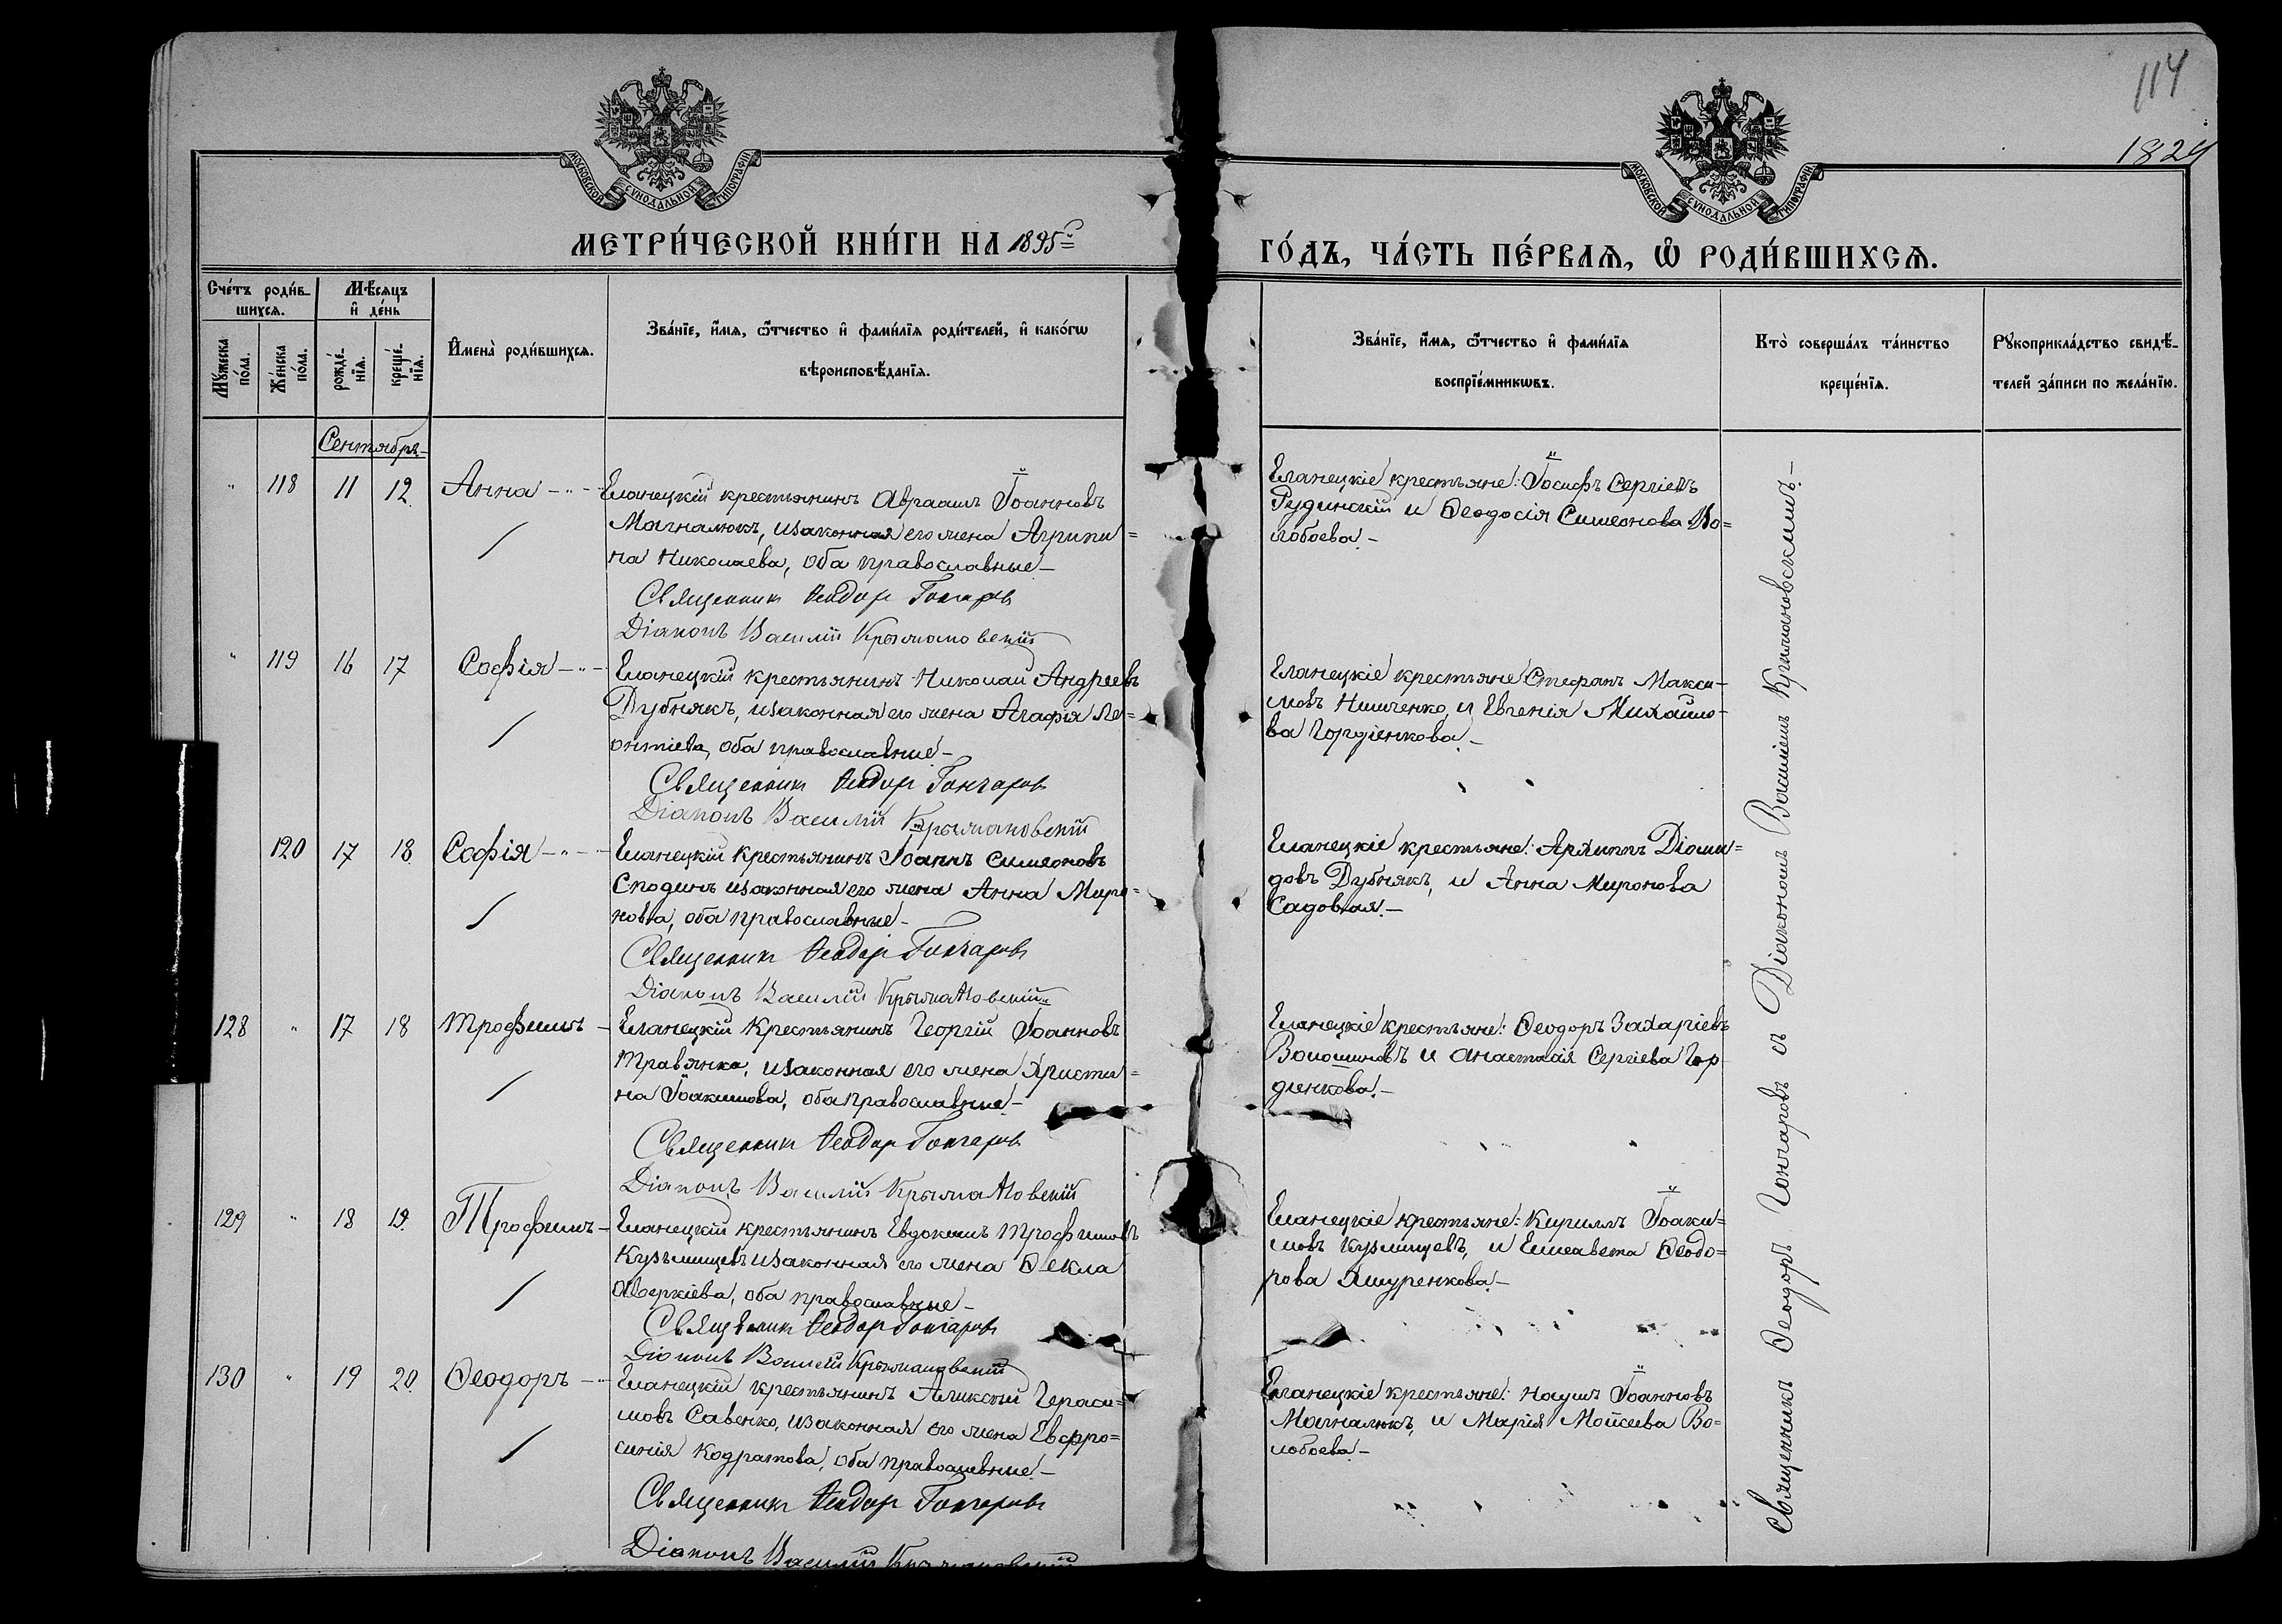 114
1824
МОСКОВСКОЙ СУНОДАЛЬНОЙ ТИПОГРАФІИ
МОСКОВСКОЙ СУНОДАЛЬНОЙ ТИПОГРАФІИ
МЕТРИ́ЧЕСКОЙ КНИ́ГИ НА 1895й
ГО́ДЪ, ЧА́СТЬ ПЕ́РВАѦ, Ѡ҆ РОДИ́ВШИХСѦ.
Сче́тъ роди́в-
шихсѧ.
Мѣ́сѧцъ
и҆ де́нь
Мꙋ́жеска
по́ла.
Же́нска
по́ла.
рожде́-
нїѧ.
креще́-
нїѧ.
И҆мена̀ роди́вшихсѧ.
Зва́нїе, и҆́мѧ, ѻ҆́тчество и҆ фами́лїѧ роди́телей, и҆ како́гѡ
вѣроисповѣ́данїѧ.
Зва́нїе, и҆́мѧ, ѻ҆́тчество и҆ фами́лїѧ
воспрїе́мникѡвъ.
Кто̀ соверша́лъ та́инство
креще́нїѧ.
Рꙋкоприкла́дство свидѣ́-
телей за́писи по жела́нїю.
Сентября
" 118 11 12 Анна
Еланецкій крестьянинъ Авраамъ Іоанновъ
Магналюкъ, изаконная его жена Агрипи=
на Николаева, оба православные
Священник Ѳеодор Гончаров
Діаконъ Василій Крыжановскій
Еланецкіе крестьяне: Іосифъ Сергіевъ
Рудинскій и Ѳеодосія Симеонова Во=
лобоева.
" 119 16 17 Софія
Еланецкій крестьянинъ Николай Андреевъ
Дубнякъ, изаконная его жена Агафія Ле=
онтіева, оба православные
Священник Ѳеодор Гончаров
Діаконъ Василій Крыжановскій
Еланецкіе крестьяне Стефанъ Макси-
мовъ Нищенко, и Евгенія Михайло-
ва Гордіенкова.
120 17 18 Софія
Еланецкій крестьянинъ Іоаннъ Симеоновъ
Сподинъ изаконная его жена Анна Миро=
нова, оба православные
Священник Ѳеодор Гончаров
Діаконъ Василій Крыжановскій
Еланецкіе крестьяне: Архипъ Діоми=
довъ Дубнякъ, и Анна Миронова
Садовая.
128 " 17 18 Трофимъ
Еланецкій крестьянинъ Георгій Іоанновъ
Травянко, изаконная его жена Христи=
на Іоакимова, оба православные
Священник Ѳеодор Гончаров
Діаконъ Василій Крыжановскій
Еланецкіе крестьяне: Ѳеодоръ Захаріевъ
Волошиновъ и Анастасія Сергіева Гор
діенкова.
129 " 18 19 Трофимъ
Еланецкій крестьянинъ Евдокимъ Трофимовъ
Кузьмищевъ изаконная его жена Ѳекла
Аверкіева, оба православные
Священник Ѳеодор Гончаров
Діаконъ Василій Крыжановскій
Еланецкіе крестьяне: Кириллъ Іоаки=
мовъ Кузмищевъ, и Елисавета Ѳеодо=
рова
130 " 19 20 Ѳеодоръ
Еланецкій крестьянинъ Алексѣй Гераси=
мовъ Савенко, изаконная его жена Евфро=
синія Кодратова, оба православные
Священник Ѳеодор Гончаров
Діаконъ Василій Крыжановскій
Еланецкіе крестьяне: Наумъ Іоанновъ
Магналюкъ, и Марія Мойсеева Во=
лобоева
Священникъ Ѳеодоръ Гончаровъ съ Діакономъ Василіемъ Крыжановскимъ.